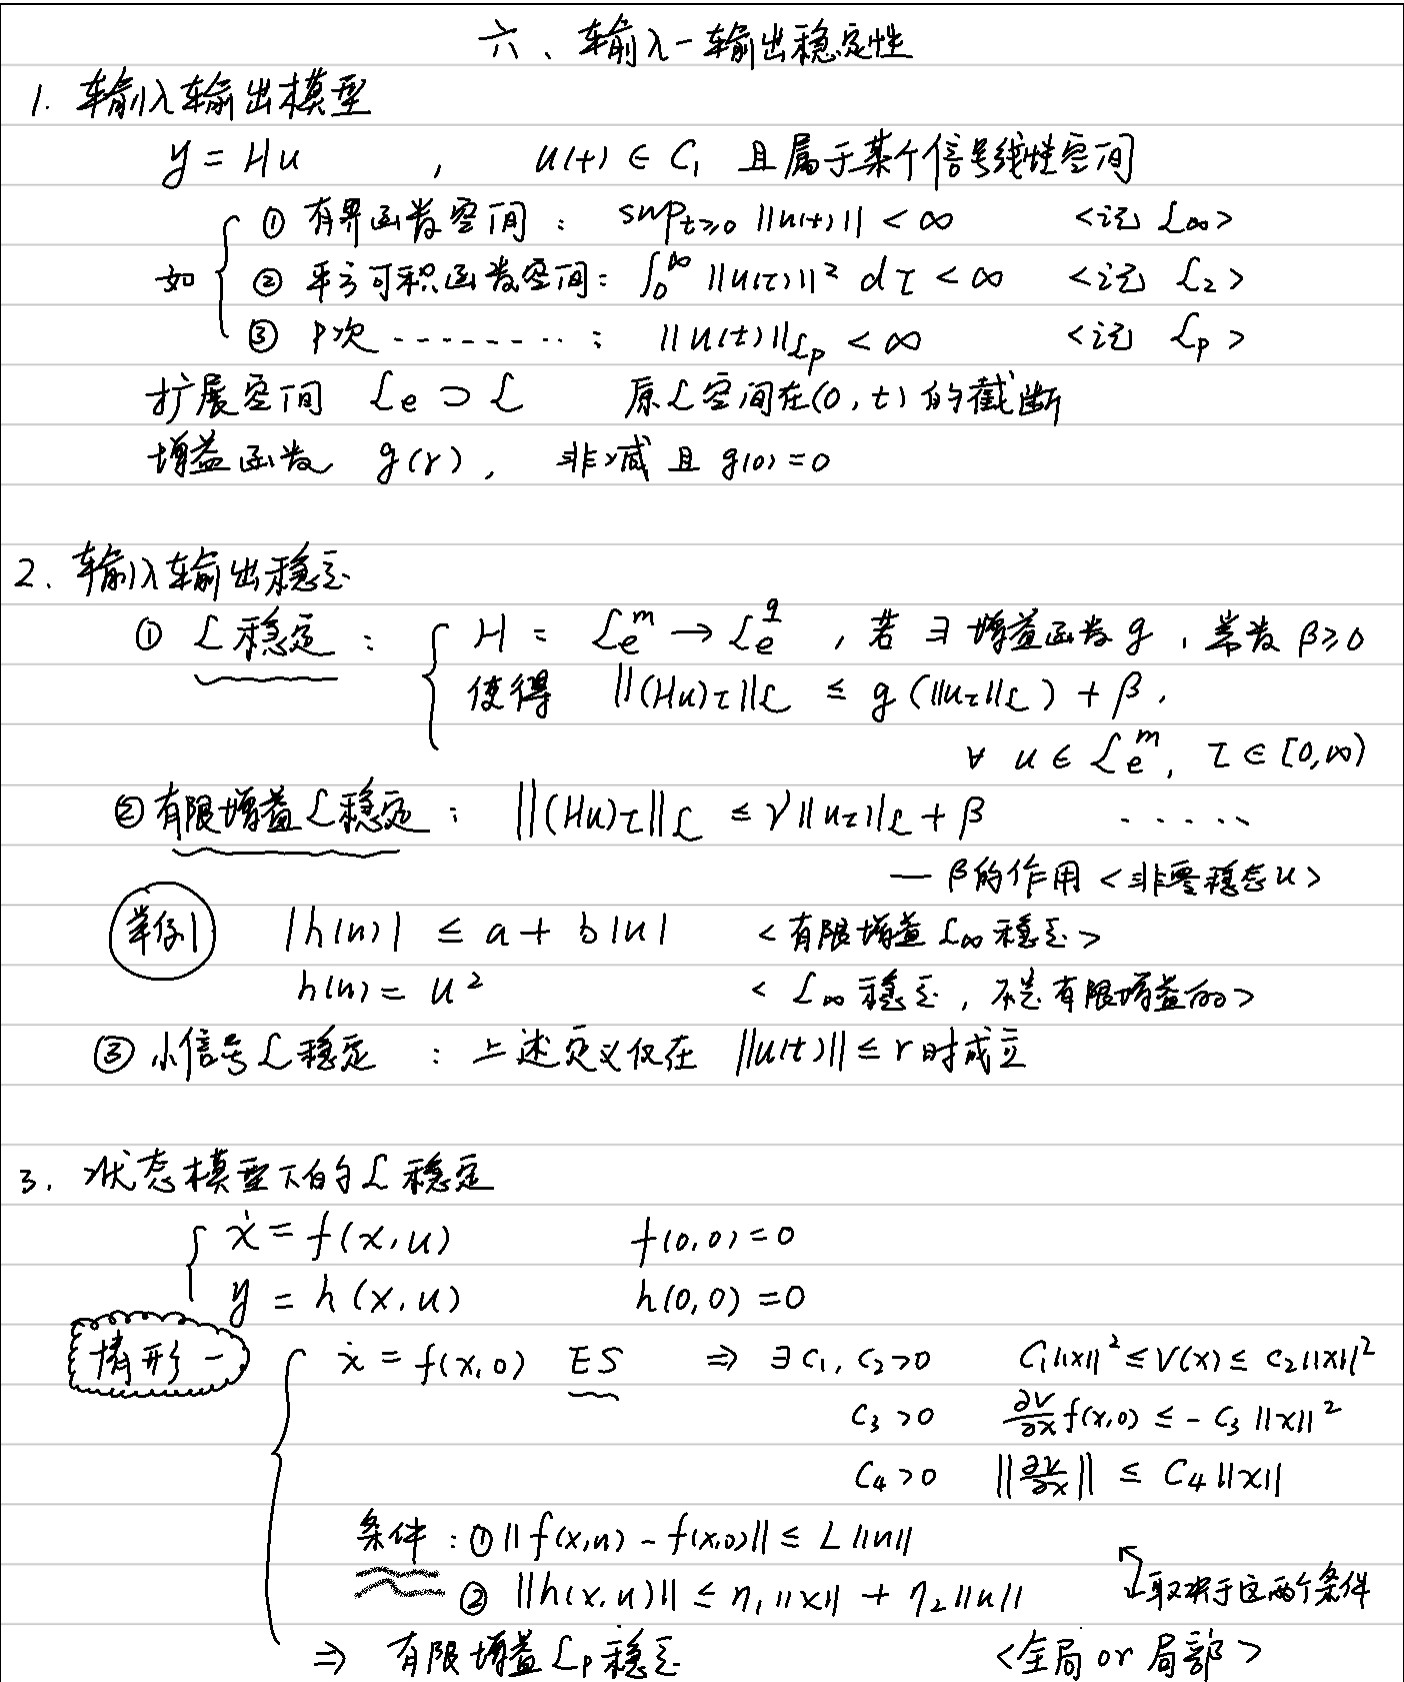 六、输入-输出稳定性
1. 输入输出模型
y = Hu , u(t) ∈ C, 且属于某个信号线性空间
① 有界函数空间: sup_{t≥0} ||u(t)|| < ∞ <记 L∞>
如 ② 平方可积函数空间: ∫₀^∞ ||u(τ)||² dτ < ∞ <记 L₂>
③ P次 ---------: ||u(t)||_{Lp} < ∞ <记 Lp>
扩展空间 Le ⊃ L 原L空间在(0, t)的截断
增益函数 g(r), 非减且 g(0)=0
2. 输入输出稳定
① L稳定: H = Le^m → Le^q , 若 ∃ 增益函数 g , 常数 β≥0
使得 ||(Hu)τ||L ≤ g(||uτ||L) + β ,
∀ u ∈ Le^m, τ ∈ [0,∞)
② 有限增益L稳定: ||(Hu)τ||L ≤ γ||uτ||L + β ·····
— β的作用 <非零稳态u>
举例1 |h(u)| ≤ a + b|u| <有限增益 L∞ 稳定>
h(u) = u² < L∞ 稳定, 不是有限增益的>
③ 小信号L稳定 : 上述定义仅在 ||u(t)|| ≤ r 时成立
3. 状态模型下的L稳定
ẋ = f(x,u) f(0,0)=0
y = h(x,u) h(0,0)=0
情形一 ẋ = f(x,0) ES ⇒ ∃ c₁, c₂>0 c₁||x||² ≤ V(x) ≤ c₂||x||²
c₃>0 ∂V/∂x f(x,0) ≤ -c₃||x||²
c₄>0 ||∂V/∂x|| ≤ c₄||x||
条件: ① ||f(x,u) - f(x,0)|| ≤ L||u||
② ||h(x,u)|| ≤ η₁||x|| + η₂||u|| 取决于这两个条件
⇒ 有限增益Lp稳定 <全局 or 局部>